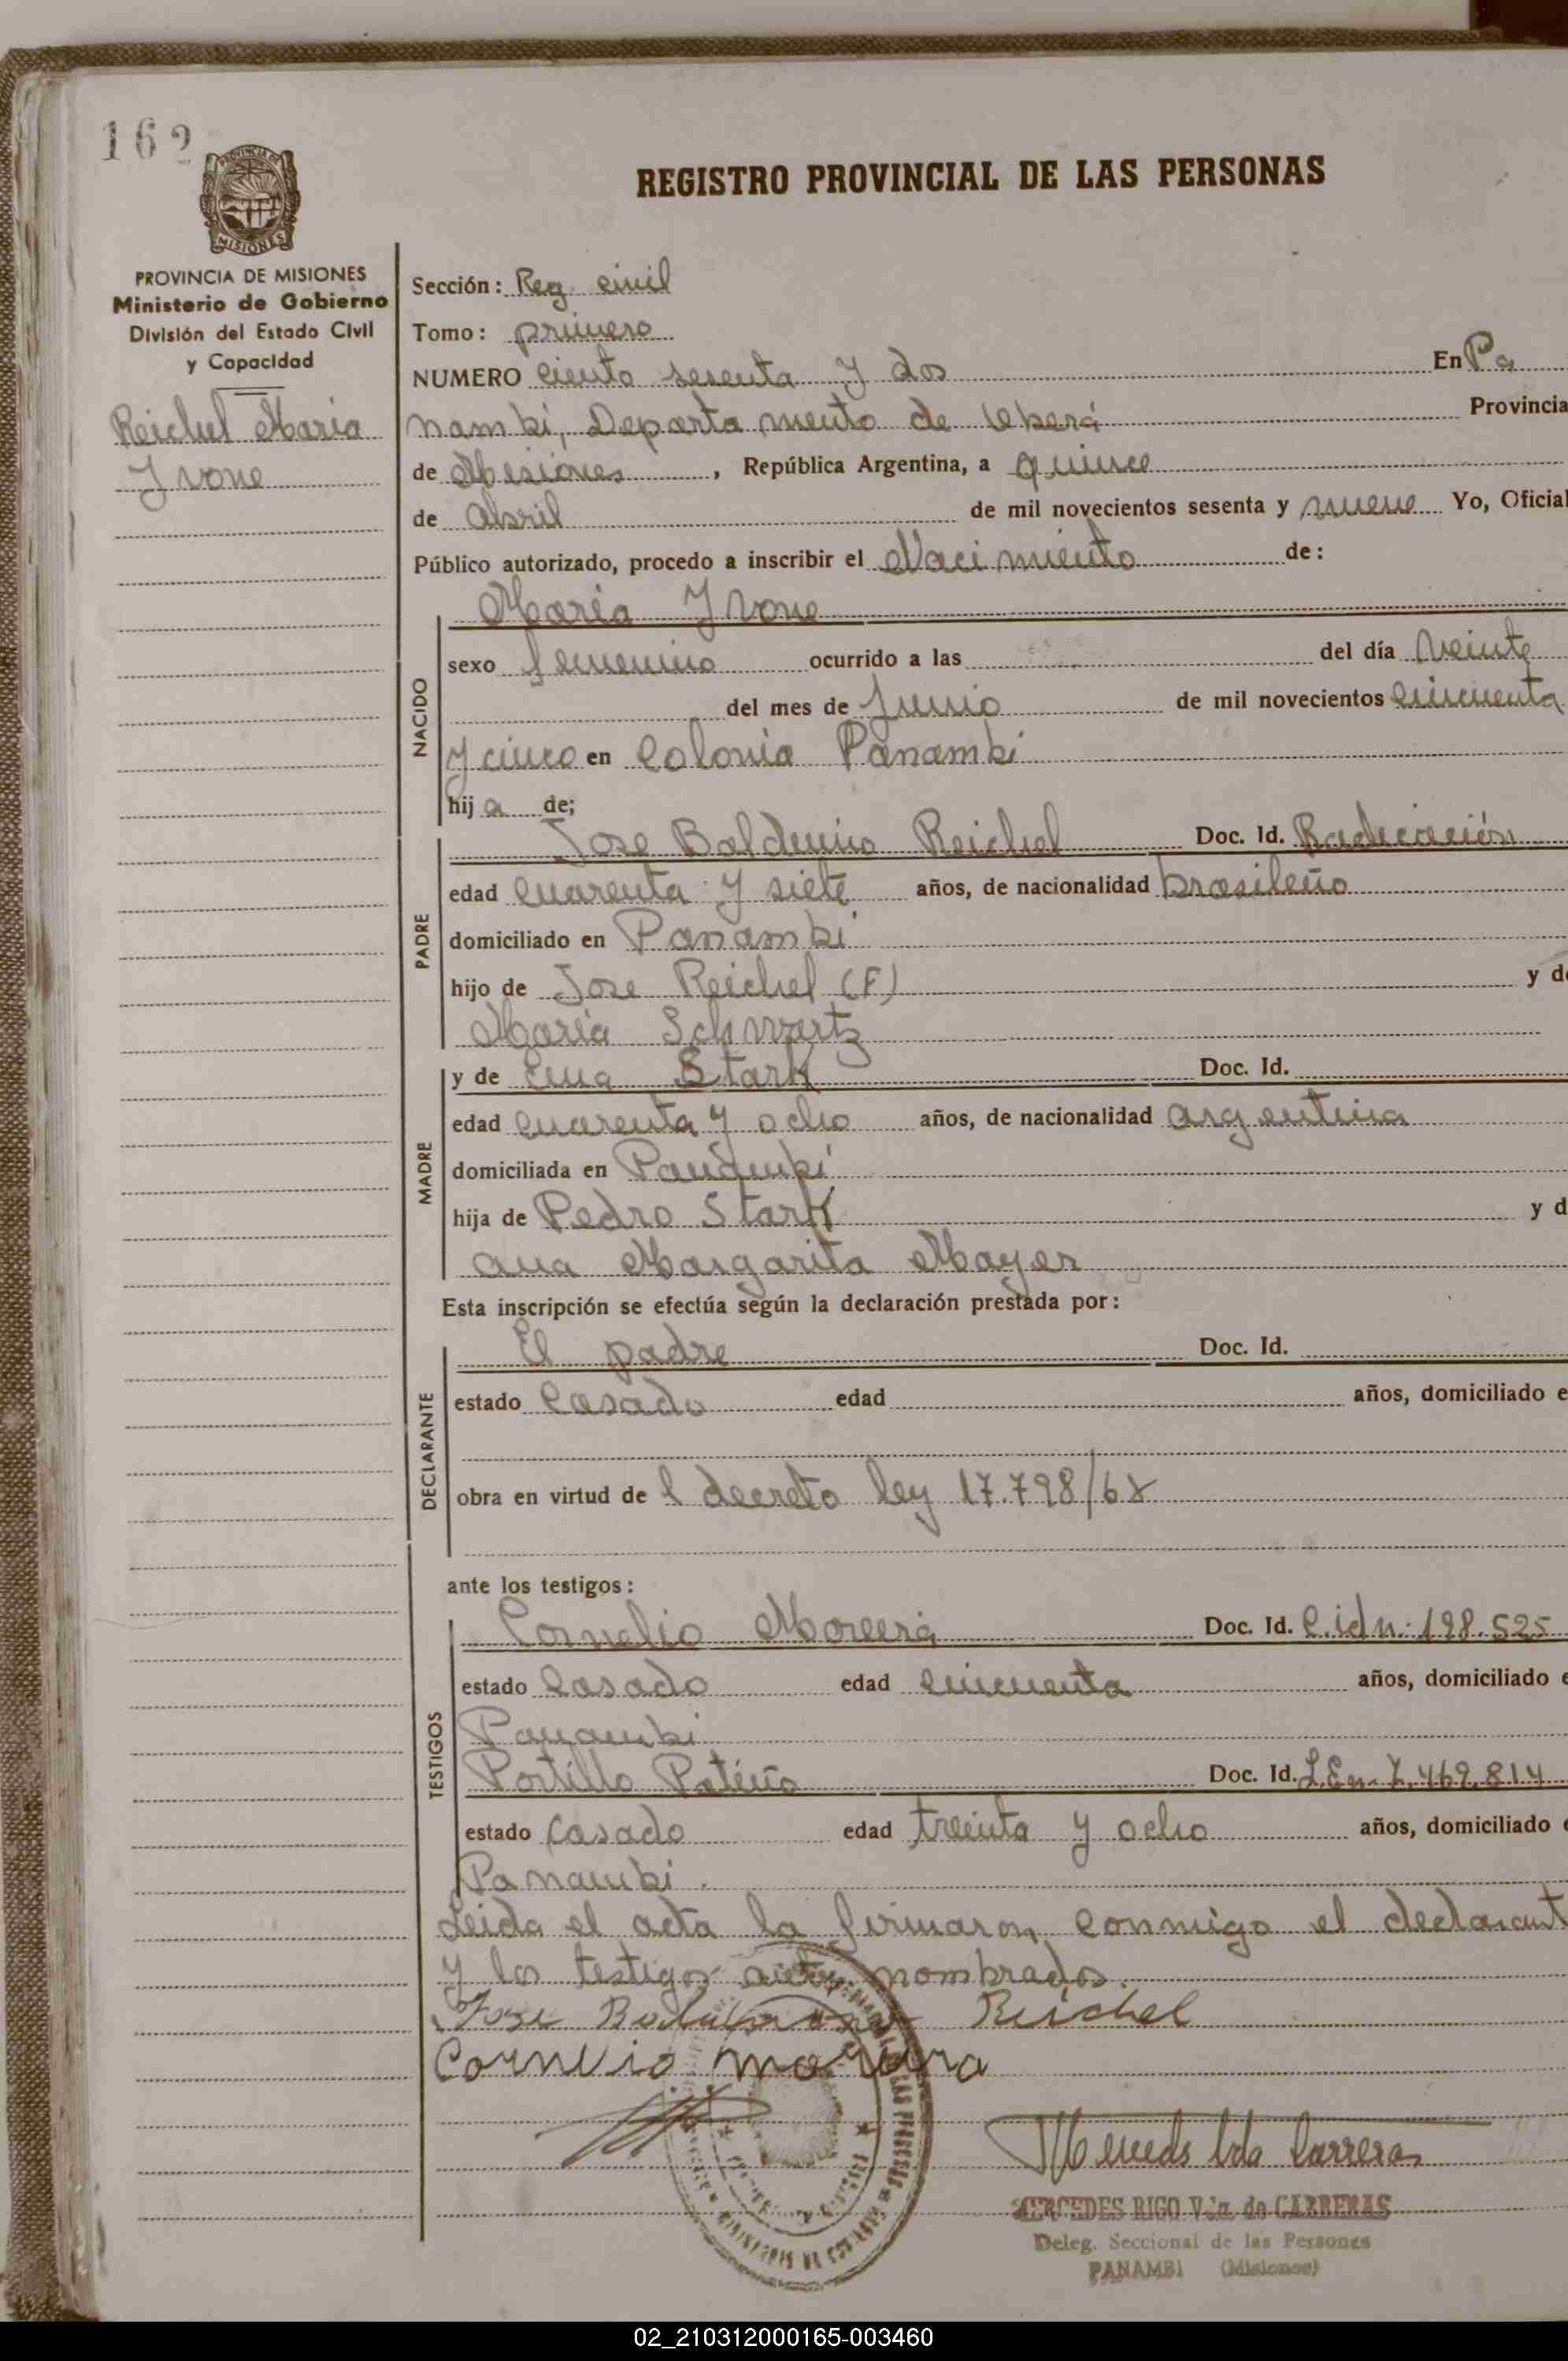 162
PROVINCIA DE
MISIONES
REGISTRO PROVINCIAL DE LAS PERSONAS
PROVINCIA DE MISIONES
Ministerio de Gobierno
División del Estado Civil
y Capacidad
Reichel Maria
Ivone
Sección: Reg. civil
Tomo: primero
NUMERO ciento sesenta y dos En Pa
nambi, Departamento de Oberá Provincia
de Misiones, República Argentina, a quince
de Abril de mil novecientos sesenta y nueve Yo, Oficial
Público autorizado, procedo a inscribir el Nacimiento de:
NACIDO
Maria Ivone
sexo femenino ocurrido a las del día veinte
del mes de Junio de mil novecientos cincuenta
y cinco en Colonia Panambi
hij a de;
PADRE
Jose Balduino Reichel Doc. Id. Radicación
edad cuarenta y siete años, de nacionalidad brasileño
domiciliado en Panambi
hijo de Jose Reichel (F) y de
Maria Schwertz
MADRE
y de Ema Stark Doc. Id.
edad cuarenta y ocho años, de nacionalidad argentina
domiciliada en Panambi
hija de Pedro Stark y d
Ana Margarita Mayer
Esta inscripción se efectúa según la declaración prestada por:
DECLARANTE
El padre Doc. Id.
estado Casado edad años, domiciliado e
obra en virtud de l decreto ley 17.798/68
ante los testigos:
TESTIGOS
Cornelio Moreira Doc. Id. C.id n: 198.525
estado Casado edad cincuenta años, domiciliado e
Panambi
Portillo Patiño Doc. Id. L.E n- 7,469,814
estado Casado edad treinta y ocho años, domiciliado e
Panambi.
Leida el acta la firmaron conmigo el declarant
y los testigos antes nombrados.
Jose Reichel
Cornelio moreira
Mercedes Vda Carreras
MERCEDES RIGO Vda. de CARRERAS
Deleg. Seccional de las Personas
PANAMBI (Misiones)
02_210312000165-003460